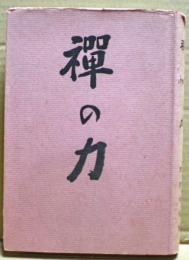 禪の力